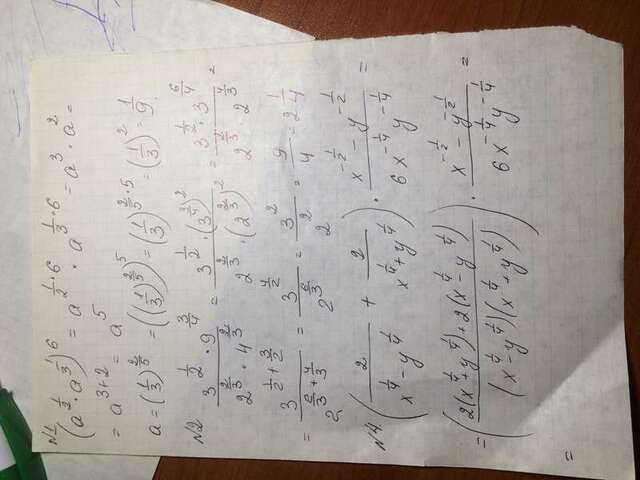 №1
(a^(1/2) · a^(1/3))^6 = a^(1/2·6) · a^(1/3·6) = a^3 · a^2 =
= a^(3+2) = a^5
a = (1/3)^(2/5) = ((1/3)^(2/5))^5 = (1/3)^(2/5·5) = (1/3)^2 = 1/9.
№2 (3^(1/2) · 9^(3/4))/(2^(2/3) · 4^(2/3)) = (3^(1/2) · (3^(3/4))^2)/(2^(2/3) · (2^(2/3))^2) = (3^(1/2) · 3^(6/4))/(2^(2/3) 2^(4/3)) =
= 3^(1/2+3/2)/2^(6/3+4/3) = 3^(4/2)/2^(6/3) = 3^2/2^2 = 9/4 = 2 1/4
№4. (2/(x^(1/4) - y^(1/4)) + 2/(x^(1/4) + y^(1/4))) · (x^(-1/2) - y^(-1/2))/(6x^(-1/4) y^(-1/4)) =
= ((2(x^(1/4) + y^(1/4)) + 2(x^(1/4) - y^(1/4)))/((x^(1/4) - y^(1/4))(x^(1/4) + y^(1/4)))) · (x^(-1/2) - y^(-1/2))/(6x^(-1/4) y^(-1/4)) =
=